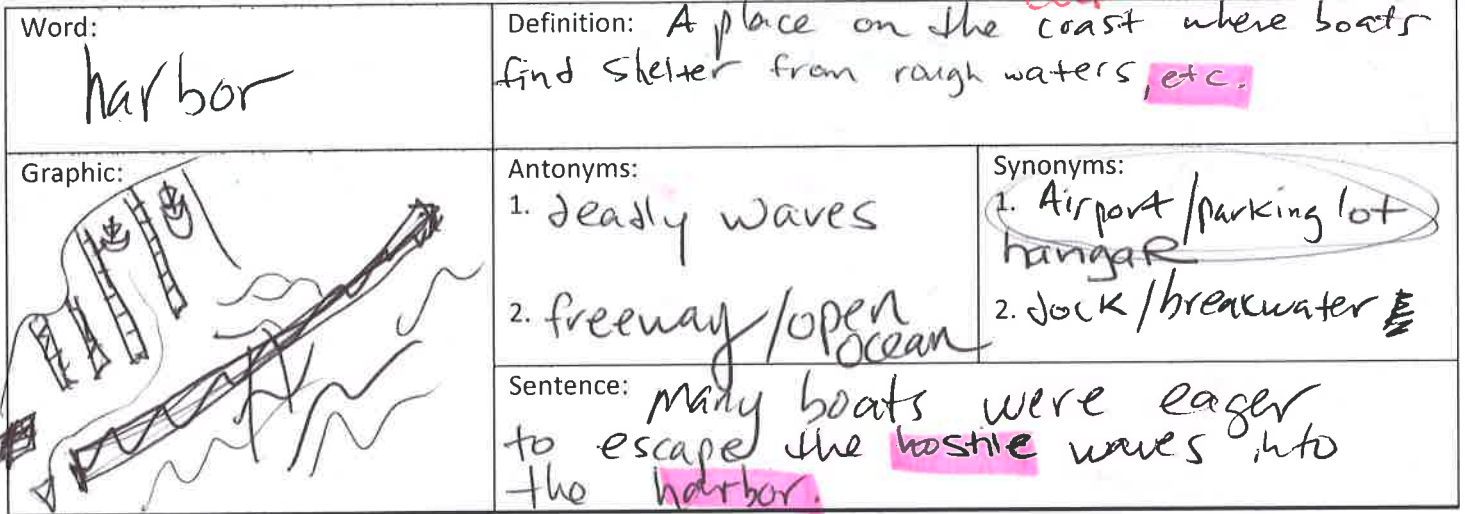 Word:
harbor
Definition: A place on the coast where boats
find shelter from rough waters, etc.
Graphic:
Antonyms:
1. deadly waves
2. freeway/open
ocean
Synonyms:
1. Airport/parking lot
hangaR
2. dock/breakwater
Sentence: Many boats were eager
to escape the hostile waves into
the harbor.